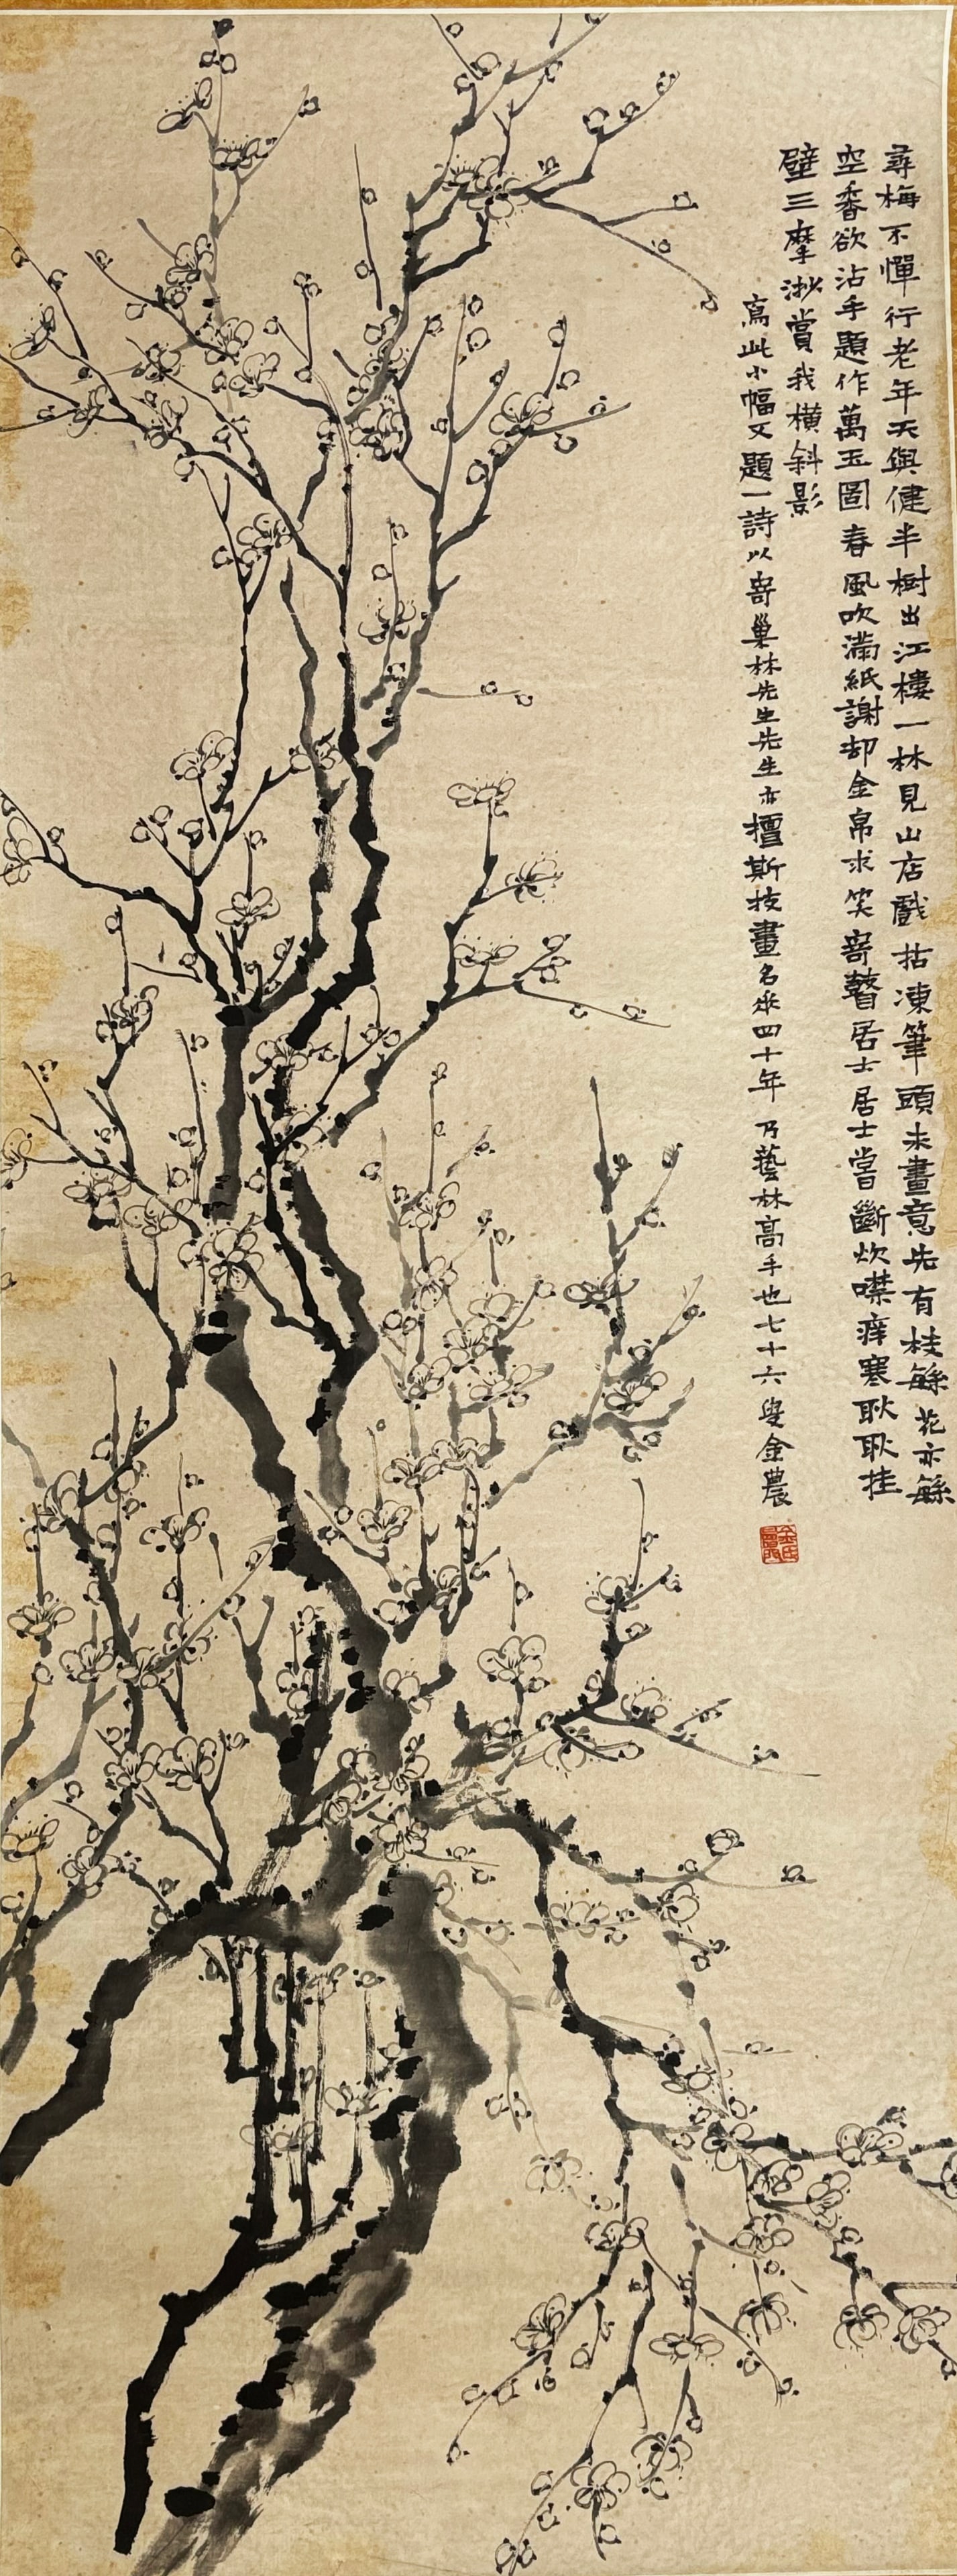 尋梅不憚行老年天與健半樹出江樓一林見山店戲拈凍筆頭未畫意先有枝緐花亦緐
空香欲沾手題作萬玉圖春風吹滿紙謝却金帛求笑寄瞽居士居士嘗斷炊噤痒寒耿耿挂
壁三摩挲賞我橫斜影
寫此小幅又題一詩以寄巢林先生先生亦擅斯技畫名垂四十年乃藝林高手也七十六叟金農
金氏